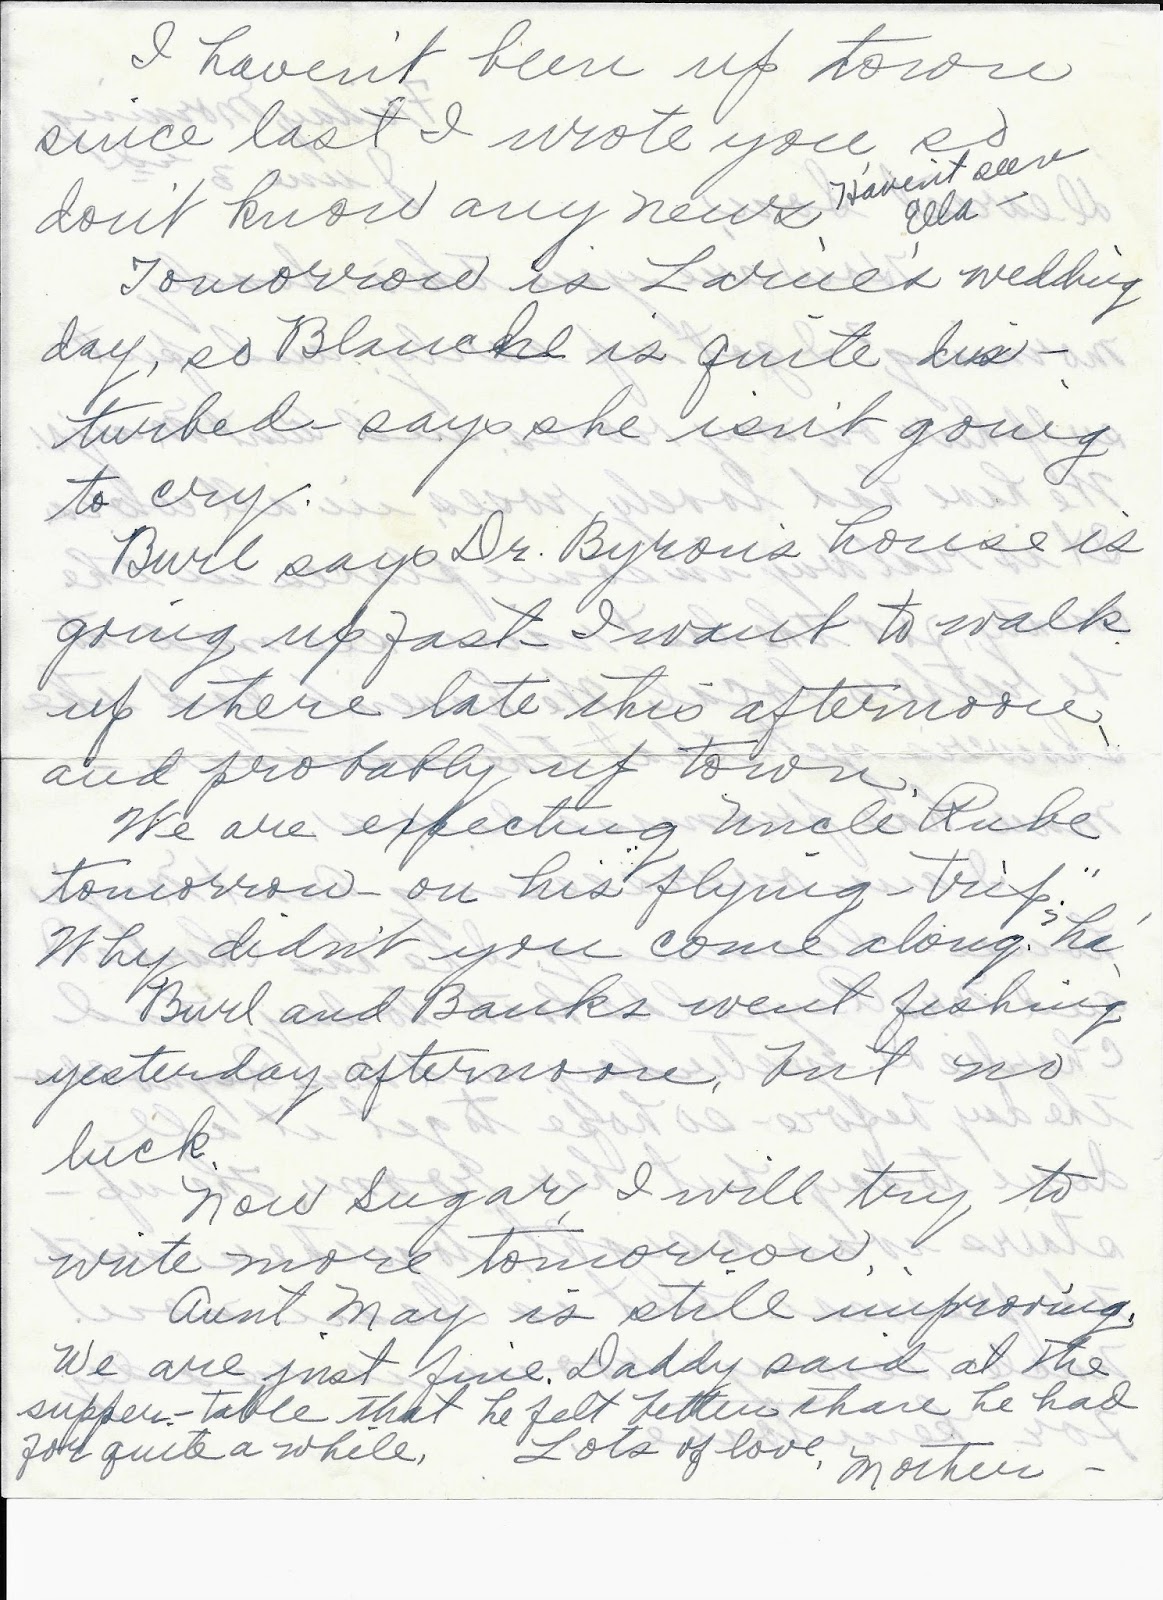 I haven't been up town
since last I wrote you so
don't know any news. Haven't seen
Ella –
Tomorrow is Larue's wedding
day, so Blanche is quite dis-
turbed – says she isn't going
to cry.
Burl says Dr. Byron's house is
going up fast – I want to walk
up there late this afternoon,
and probably up town.
We are expecting Uncle Rube
tomorrow – on his "flying-trip."
Why didn't you come along? ha'
Burl and Banks went fishing
yesterday afternoon, but no
luck.
Now Sugar, I will try to
write more tomorrow.
Aunt May is still improving.
We are just fine. Daddy said at the
supper-table that he felt better than he had
for quite a while. Lots of love, Mother –